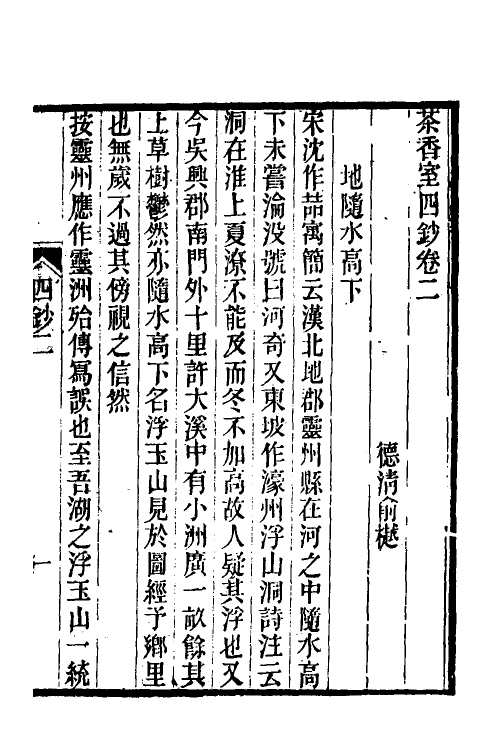 茶香室四鈔卷二
德淸俞樾
地隨水高下
宋沈作喆寓簡云漢北地郡靈州縣在河之中隨水高
下未嘗淪没號曰河奇又東坡作濠州浮山洞詩注云
洞在淮上夏潦不能及而冬不加高故人疑其浮也又
今吳興郡南門外十里許大溪中有小洲廣一畝餘其
上草樹鬱然亦隨水高下名浮玉山見於圖經予鄉里
也無歲不過其傍視之信然
按靈州應作靈洲殆傳寫誤也至吾湖之浮玉山一統
四鈔二
一